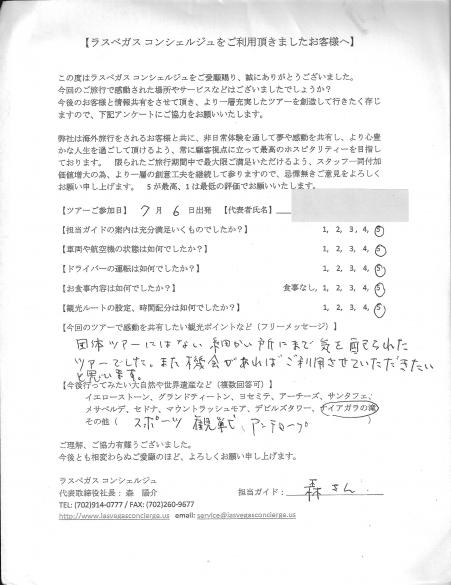 【ラスベガス コンシェルジュをご利用頂きましたお客様へ】
この度はラスベガス コンシェルジュをご愛顧賜り、誠にありがとうございました。
今回のご旅行で感動された場所やサービスなどはございましたでしょうか？
今後のお客様と情報共有をさせて頂き、より一層充実したツアーを創造して行きたく存じ
ますので、下記アンケートにご協力をお願いいたします。
弊社は海外旅行をされるお客様と共に、非日常体験を通して夢や感動を共有し、より心豊
かな人生を過ごして頂けるよう、常に顧客視点に立って最高のホスピタリティーを目指し
ております。 限られたご旅行期間中で最大限ご満足いただけるよう、スタッフ一同付加
価値増大の為、より一層の創意工夫を継続して参りますので、忌憚無きご意見をよろしく
お願い申し上げます。 5が最高、1は最低の評価でお願いいたします。
【ツアーご参加日】 7 月 6 日出発 【代表者氏名】
【担当ガイドの案内は充分満足いくものでしたか？】 1, 2, 3, 4, 5
【車両や航空機の状態は如何でしたか？】 1, 2, 3, 4, 5
【ドライバーの運転は如何でしたか？】 1, 2, 3, 4, 5
【お食事内容は如何でしたか？】 食事なし, 1, 2, 3, 4, 5
【観光ルートの設定、時間配分は如何でしたか？】 1, 2, 3, 4, 5
【今回のツアーで感動を共有したい観光ポイントなど（フリーメッセージ）】
団体ツアーにはない細かい所にまで気を配られた
ツアーでした。また機会があればご利用させていただきたい
と思います。
【今後行ってみたい大自然や世界遺産など（複数回答可）】
イエローストーン、グランドティートン、ヨセミテ、アーチーズ、サンタフェ、
メサベルデ、セドナ、マウントラッシュモア、デビルズタワー、ナイアガラの滝
その他（ スポーツ観戦、アンテロープ
ご理解、ご協力有難うございました。
今後とも相変わらぬご愛顧のほど、よろしくお願い申し上げます。
ラスベガス コンシェルジュ
代表取締役社長： 森 陽介 担当ガイド： 森さん
TEL: (702)914-0777 / FAX: (702)260-9677
http://www.lasvegasconcierge.us email: service@lasvegasconcierge.us